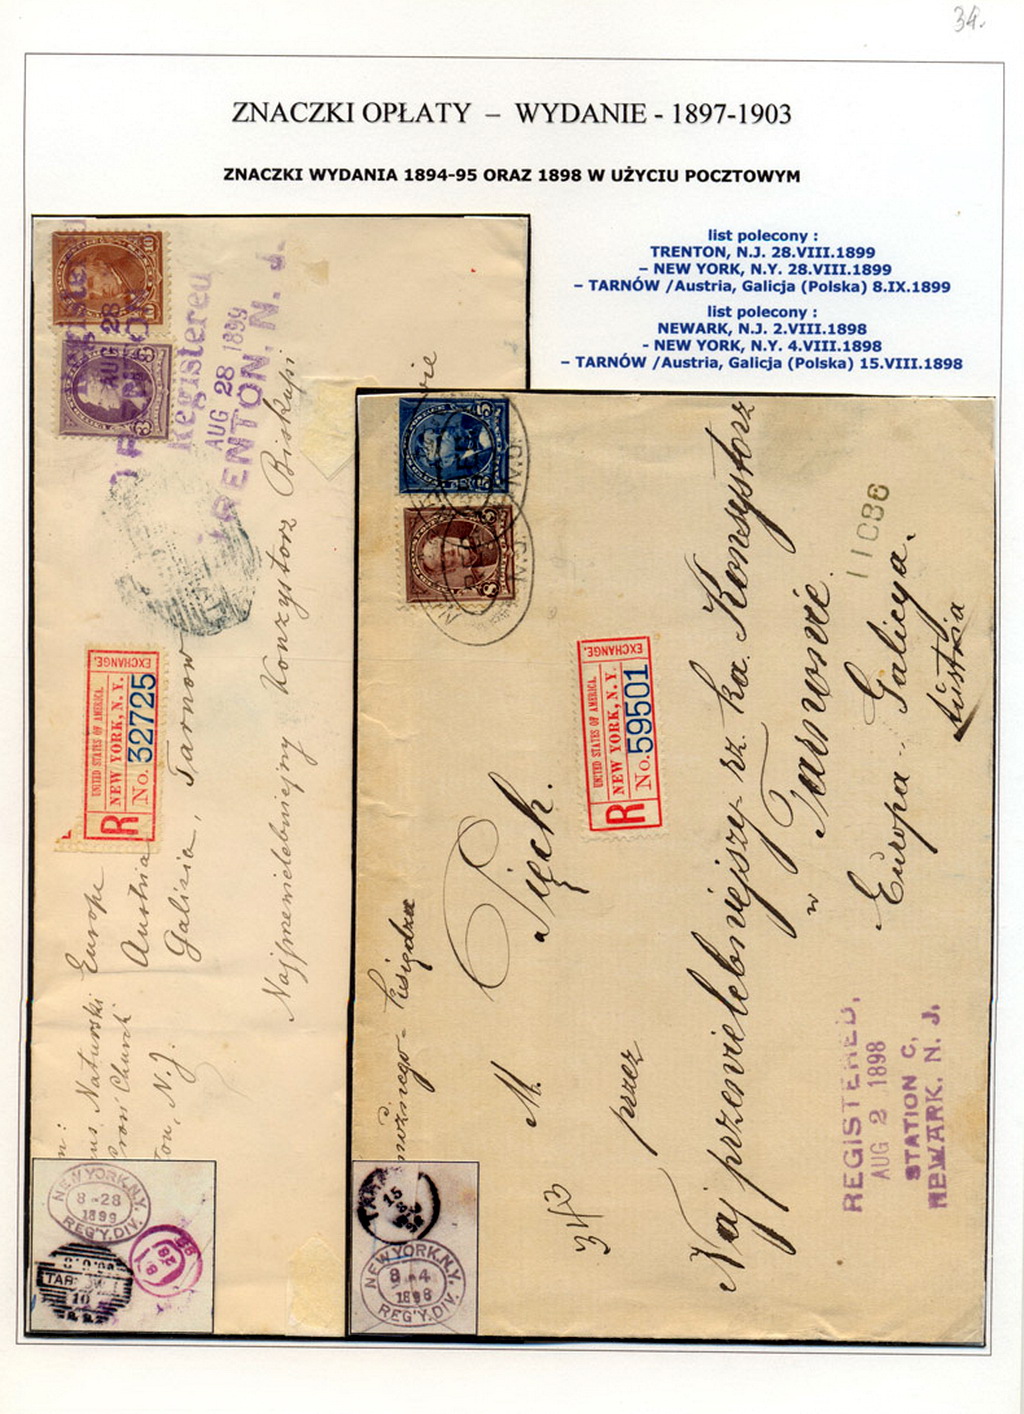 34.
ZNACZKI OPŁATY – WYDANIE - 1897-1903
ZNACZKI WYDANIA 1894-95 ORAZ 1898 W UŻYCIU POCZTOWYM
list polecony :
TRENTON, N.J. 28.VIII.1899
– NEW YORK, N.Y. 28.VIII.1899
– TARNÓW /Austria, Galicja (Polska) 8.IX.1899
list polecony :
NEWARK, N.J. 2.VIII.1898
- NEW YORK, N.Y. 4.VIII.1898
– TARNÓW /Austria, Galicja (Polska) 15.VIII.1898
Registered
AUG 28 1899
TRENTON, N. J.
EXCHANGE.
UNITED STATES OF AMERICA.
NEW YORK, N. Y.
R No. 32725
Naturski
Church
N. J.
Europe
Austria
Galisia, Tarnow
Najprzewielebniejszy Konzystorz Biskupi
NEW YORK, N.Y.
8-28
1899
REG'Y. DIV.
TARNOW
10
EXCHANGE.
UNITED STATES OF AMERICA.
NEW YORK, N. Y.
R No. 59501
Księdza
M. Pięch.
przez
Najprzewielebniejszy rz. ka. Konsystorz
w Tarnowie.
Europa - Galicya.
Austria
11086
REGISTERED,
AUG 2 1898
STATION C,
NEWARK. N. J.
15
NEW YORK, N.Y.
8-4
1898
REG'Y. DIV.